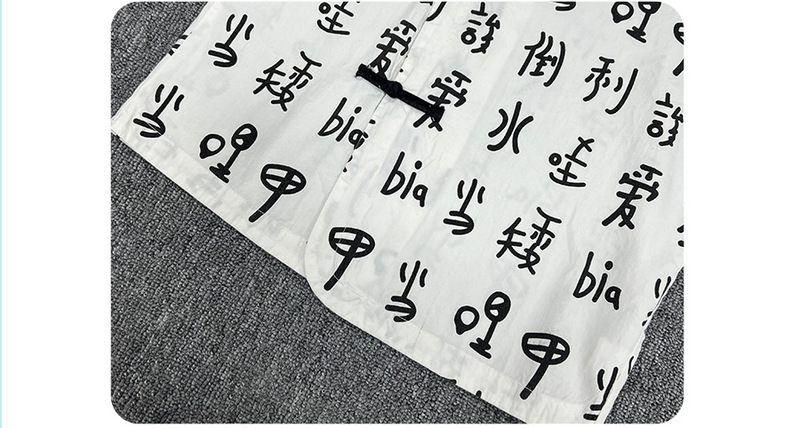 哇 爱
当 矮 bia
当 哩 甲
哩
倒 利
爱 水 哇 爱
bia 当 矮 bia
甲 当 哩 甲 当